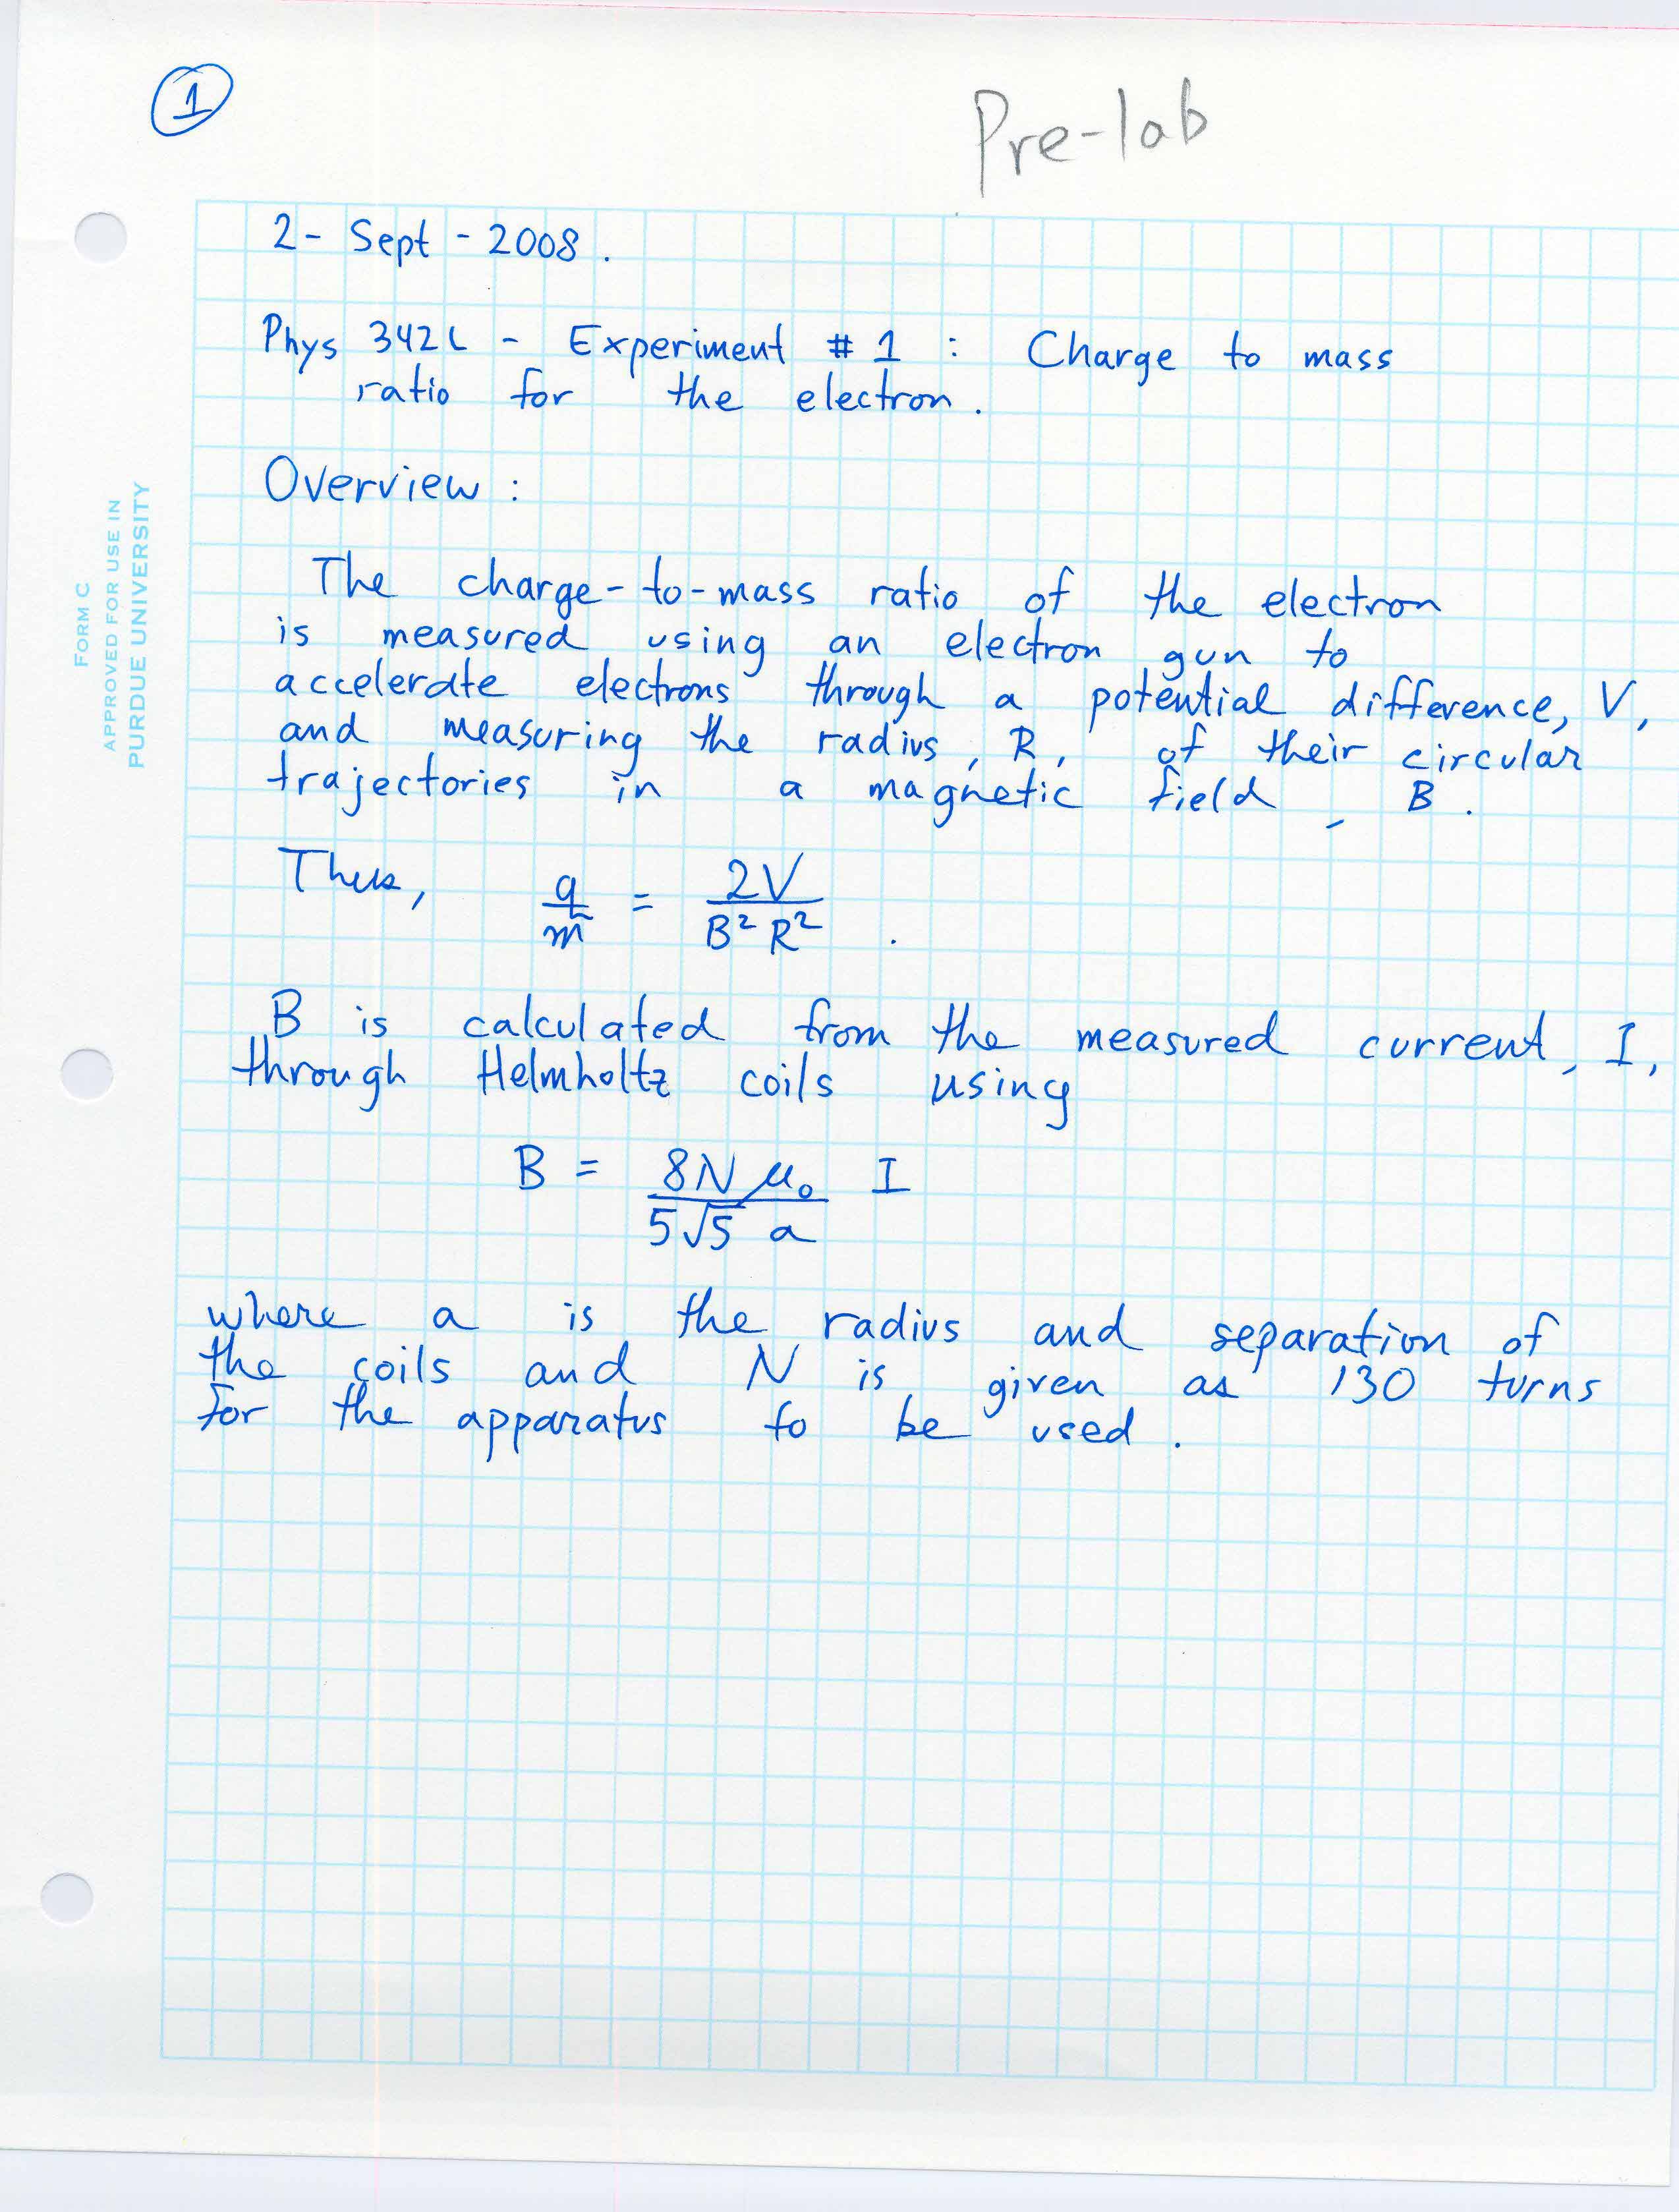 1
Pre-lab
2- Sept - 2008.
Phys 342L - Experiment # 1 : Charge to mass
ratio for the electron.
Overview :
FORM C
APPROVED FOR USE IN
PURDUE UNIVERSITY
The charge-to-mass ratio of the electron
is measured using an electron gun to
accelerate electrons through a potential difference, V,
and measuring the radius, R, of their circular
trajectories in a magnetic field, B.
Thus, q/m = 2V / B² R² .
B is calculated from the measured current, I,
through Helmholtz coils using
B = 8Nμ₀ / 5√5 a I
where a is the radius and separation of
the coils and N is given as 130 turns
for the apparatus to be used.